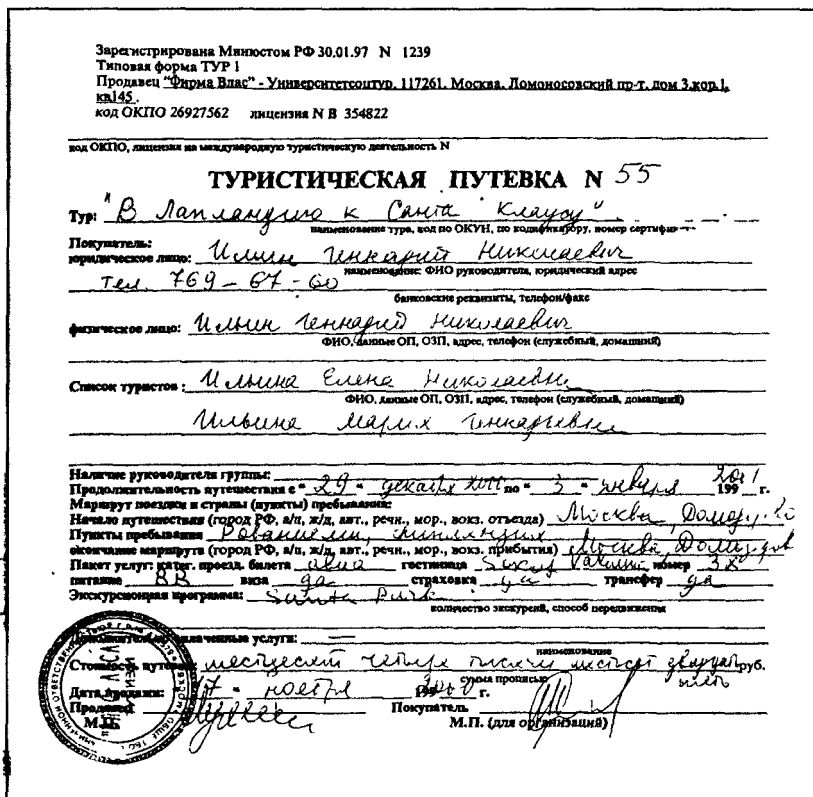 Зарегистрирована Минюстом РФ 30.01.97 N 1239
Типовая форма ТУР 1
Продавец "Фирма Влас" - Университетсоптур, 117261, Москва, Ломоносовский пр-т, дом 3,кор.1,
кв145.
код ОКПО 26927562 лицензия N В 354822
код ОКПО, лицензия на международную туристическую деятельность N
ТУРИСТИЧЕСКАЯ ПУТЕВКА N 55
Тур: "В Лапландию к Санта Клаусу"
наименование тура, код по ОКУН, по кодификатору, номер сертифи
Покупатель:
юридическое лицо: Ильин Геннадий Николаевич
наименование: ФИО руководителя, юридический адрес
Тел. 769-67-60
банковские реквизиты, телефон/факс
физическое лицо: Ильин Геннадий Николаевич
ФИО, данные ОП, ОЗП, адрес, телефон (служебный, домашний)
Список туристов: Ильина Елена Николаевна
ФИО, данные ОП, ОЗП, адрес, телефон (служебный, домашний)
Ильина Мария Геннадьевна
Наличие руководителя группы:
Продолжительность путешествия с "29" декабря по "3" января 2001 199 г.
Маршрут поездки и страны (пункты) пребывания:
Начало путешествия (город РФ, а/п, ж/д, авт., речн., мор., вокз. отъезда) Москва,
Пункты пребывания Рованиеми, Финляндия
окончание маршрута (город РФ, а/п, ж/д, авт., речн., мор., вокз. прибытия) Москва,
Пакет услуг: катег. проезд. билета авиа гостиница номер 3х
питание BB виза да страховка да трансфер да
Экскурсионная программа: Santa Park
количество экскурсий, способ передвижения
Дополнительно оплаченные услуги: —
наименование
Стоимость путевки: шестьдесят четыре тысячи шестьсот двадцать пять руб.
сумма прописью
Дата продажи: 17 " ноября 2000 г.
Продавец Покупатель
М.П. М.П. (для организаций)